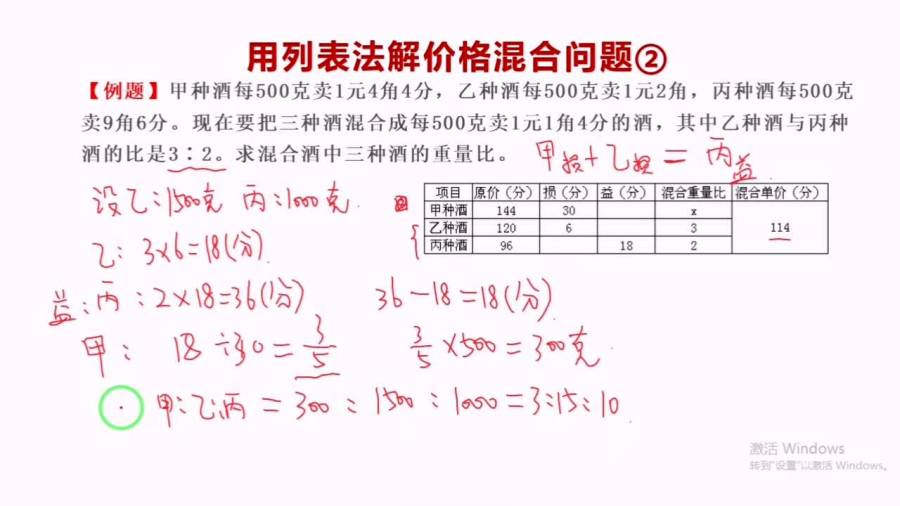 用列表法解价格混合问题②
【例题】甲种酒每500克卖1元4角4分，乙种酒每500克卖1元2角，丙种酒每500克
卖9角6分。现在要把三种酒混合成每500克卖1元1角4分的酒，其中乙种酒与丙种
酒的比是3∶2。求混合酒中三种酒的重量比。
甲损+乙损=丙益
设乙:1500克 丙:1000克
项目 原价（分） 损（分） 益（分） 混合重量比 混合单价（分）
甲种酒 144 30 x
乙种酒 120 6 3 114
丙种酒 96 18 2
乙: 3×6=18(分)
益:丙:2×18=36(分) 36-18=18(分)
甲: 18÷30=3/5 3/5×500=300克
甲:乙:丙=300:1500:1000=3:15:10
激活 Windows
转到"设置"以激活 Windows。